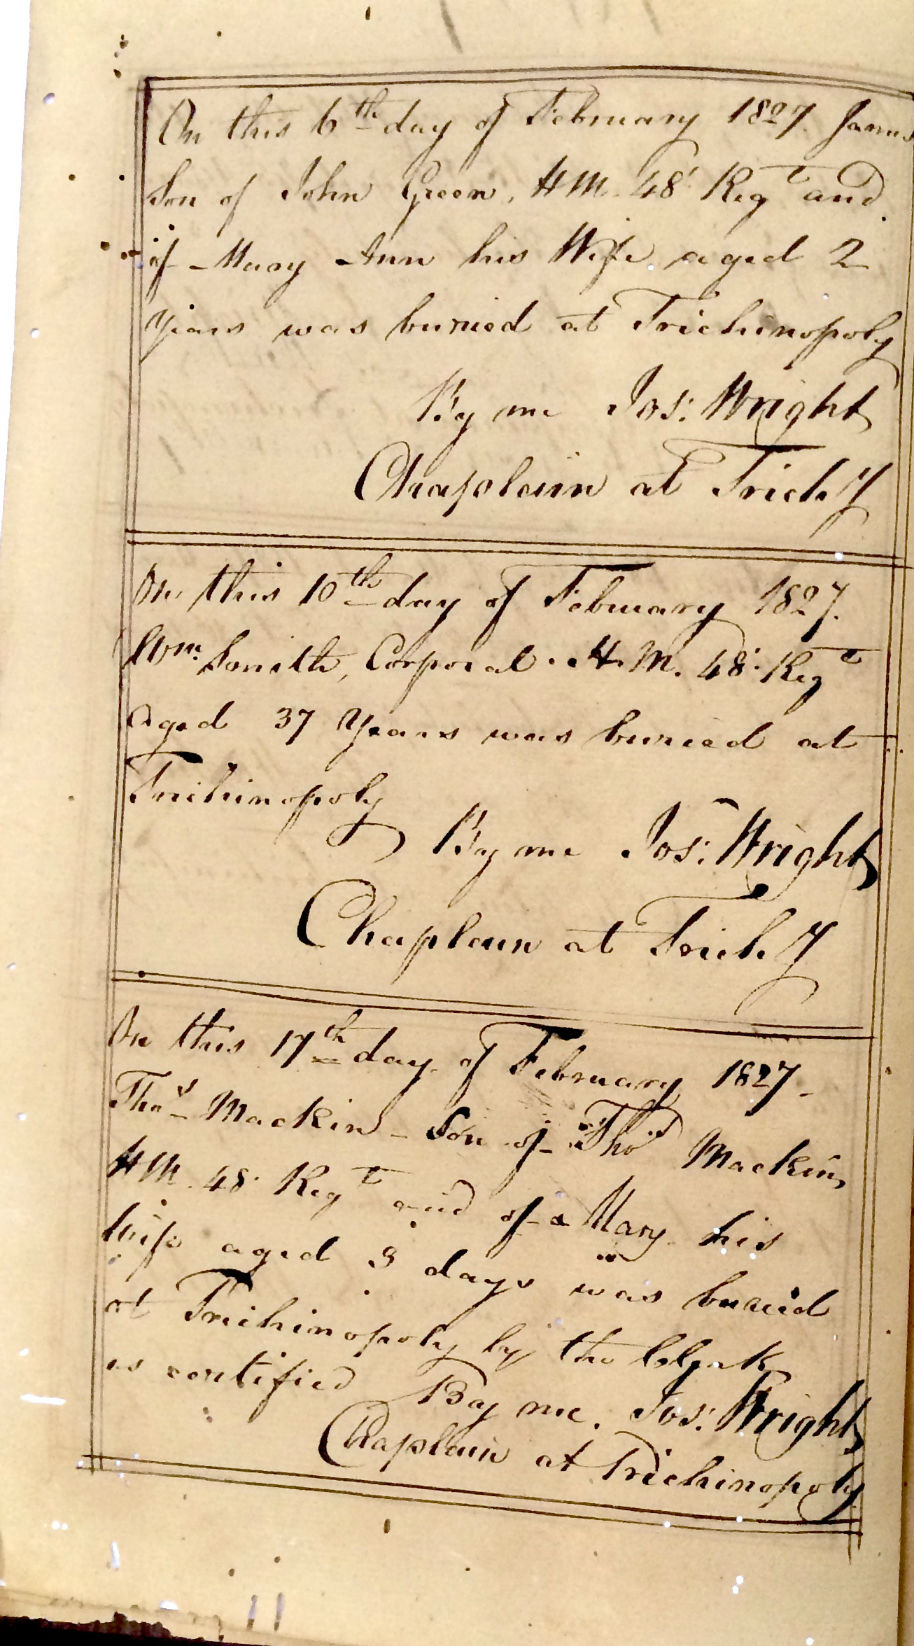 On this 6th day of February 1827. James
Son of John Green, H.M. 48 Regt and
of Mary Ann his Wife aged 2
Years was buried at Trichinopoly
By me Jos: Wright
Chaplain at Trichy
On this 10th day of February 1827.
Wm. Smith, Corporal H.M. 48 Regt
Aged 37 Years was buried at
Trichinopoly
By me Jos: Wright
Chaplain at Trichy
On this 17th day of February 1827 -
Thos Mackin - Son of Thos Mackin,
HM. 48 Regt and of Mary his
Wife aged 3 days was buried
at Trichinopoly by the Clerk
as certified By me. Jos: Wright
Chaplain at Trichinopoly